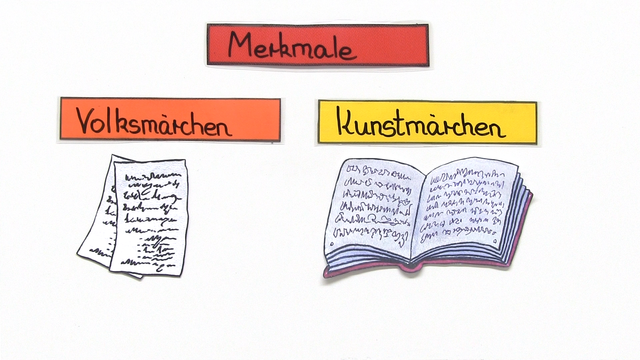 Merkmale
Volksmärchen
Kunstmärchen